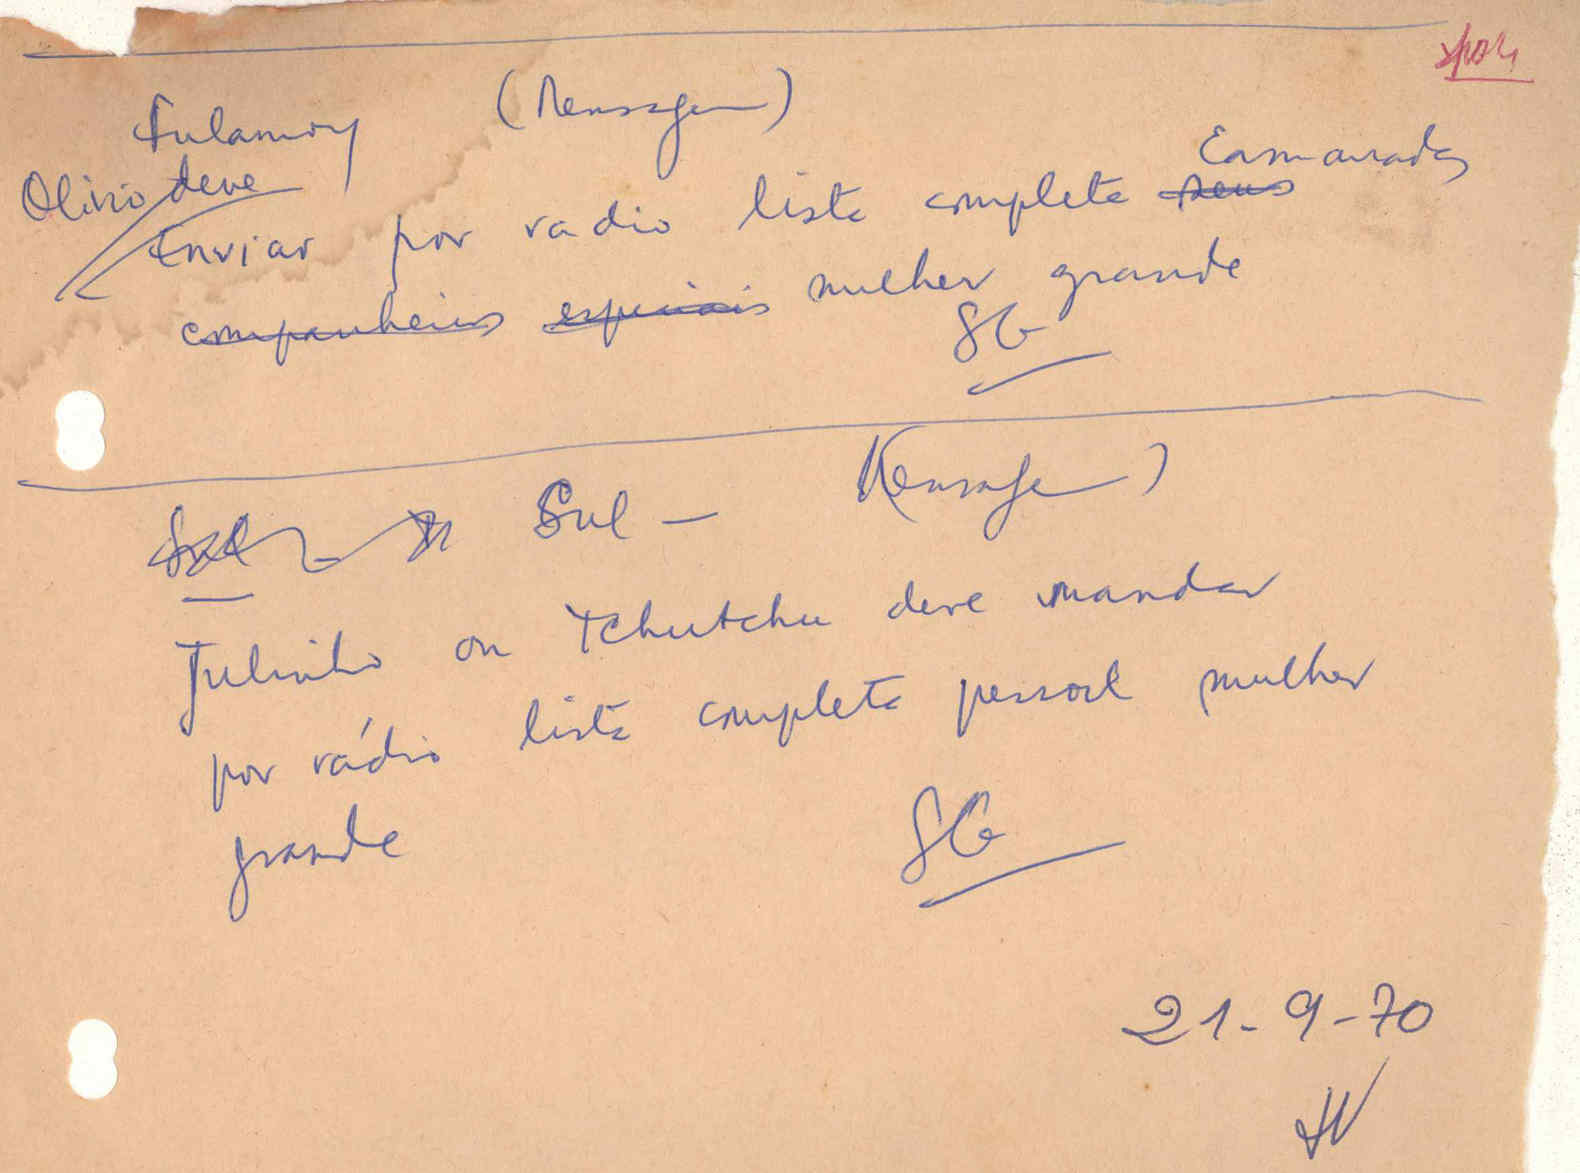 Fulamory (Mensagem)
Olivio deve
Camaradas
Enviar por radio lista completa seus
companheiros especiais mulher grande
SG
Sul — Mensagem)
Julinho ou Tchutchu deve mandar
por rádio lista completa pessoal mulher
grande
SG
21-9-70